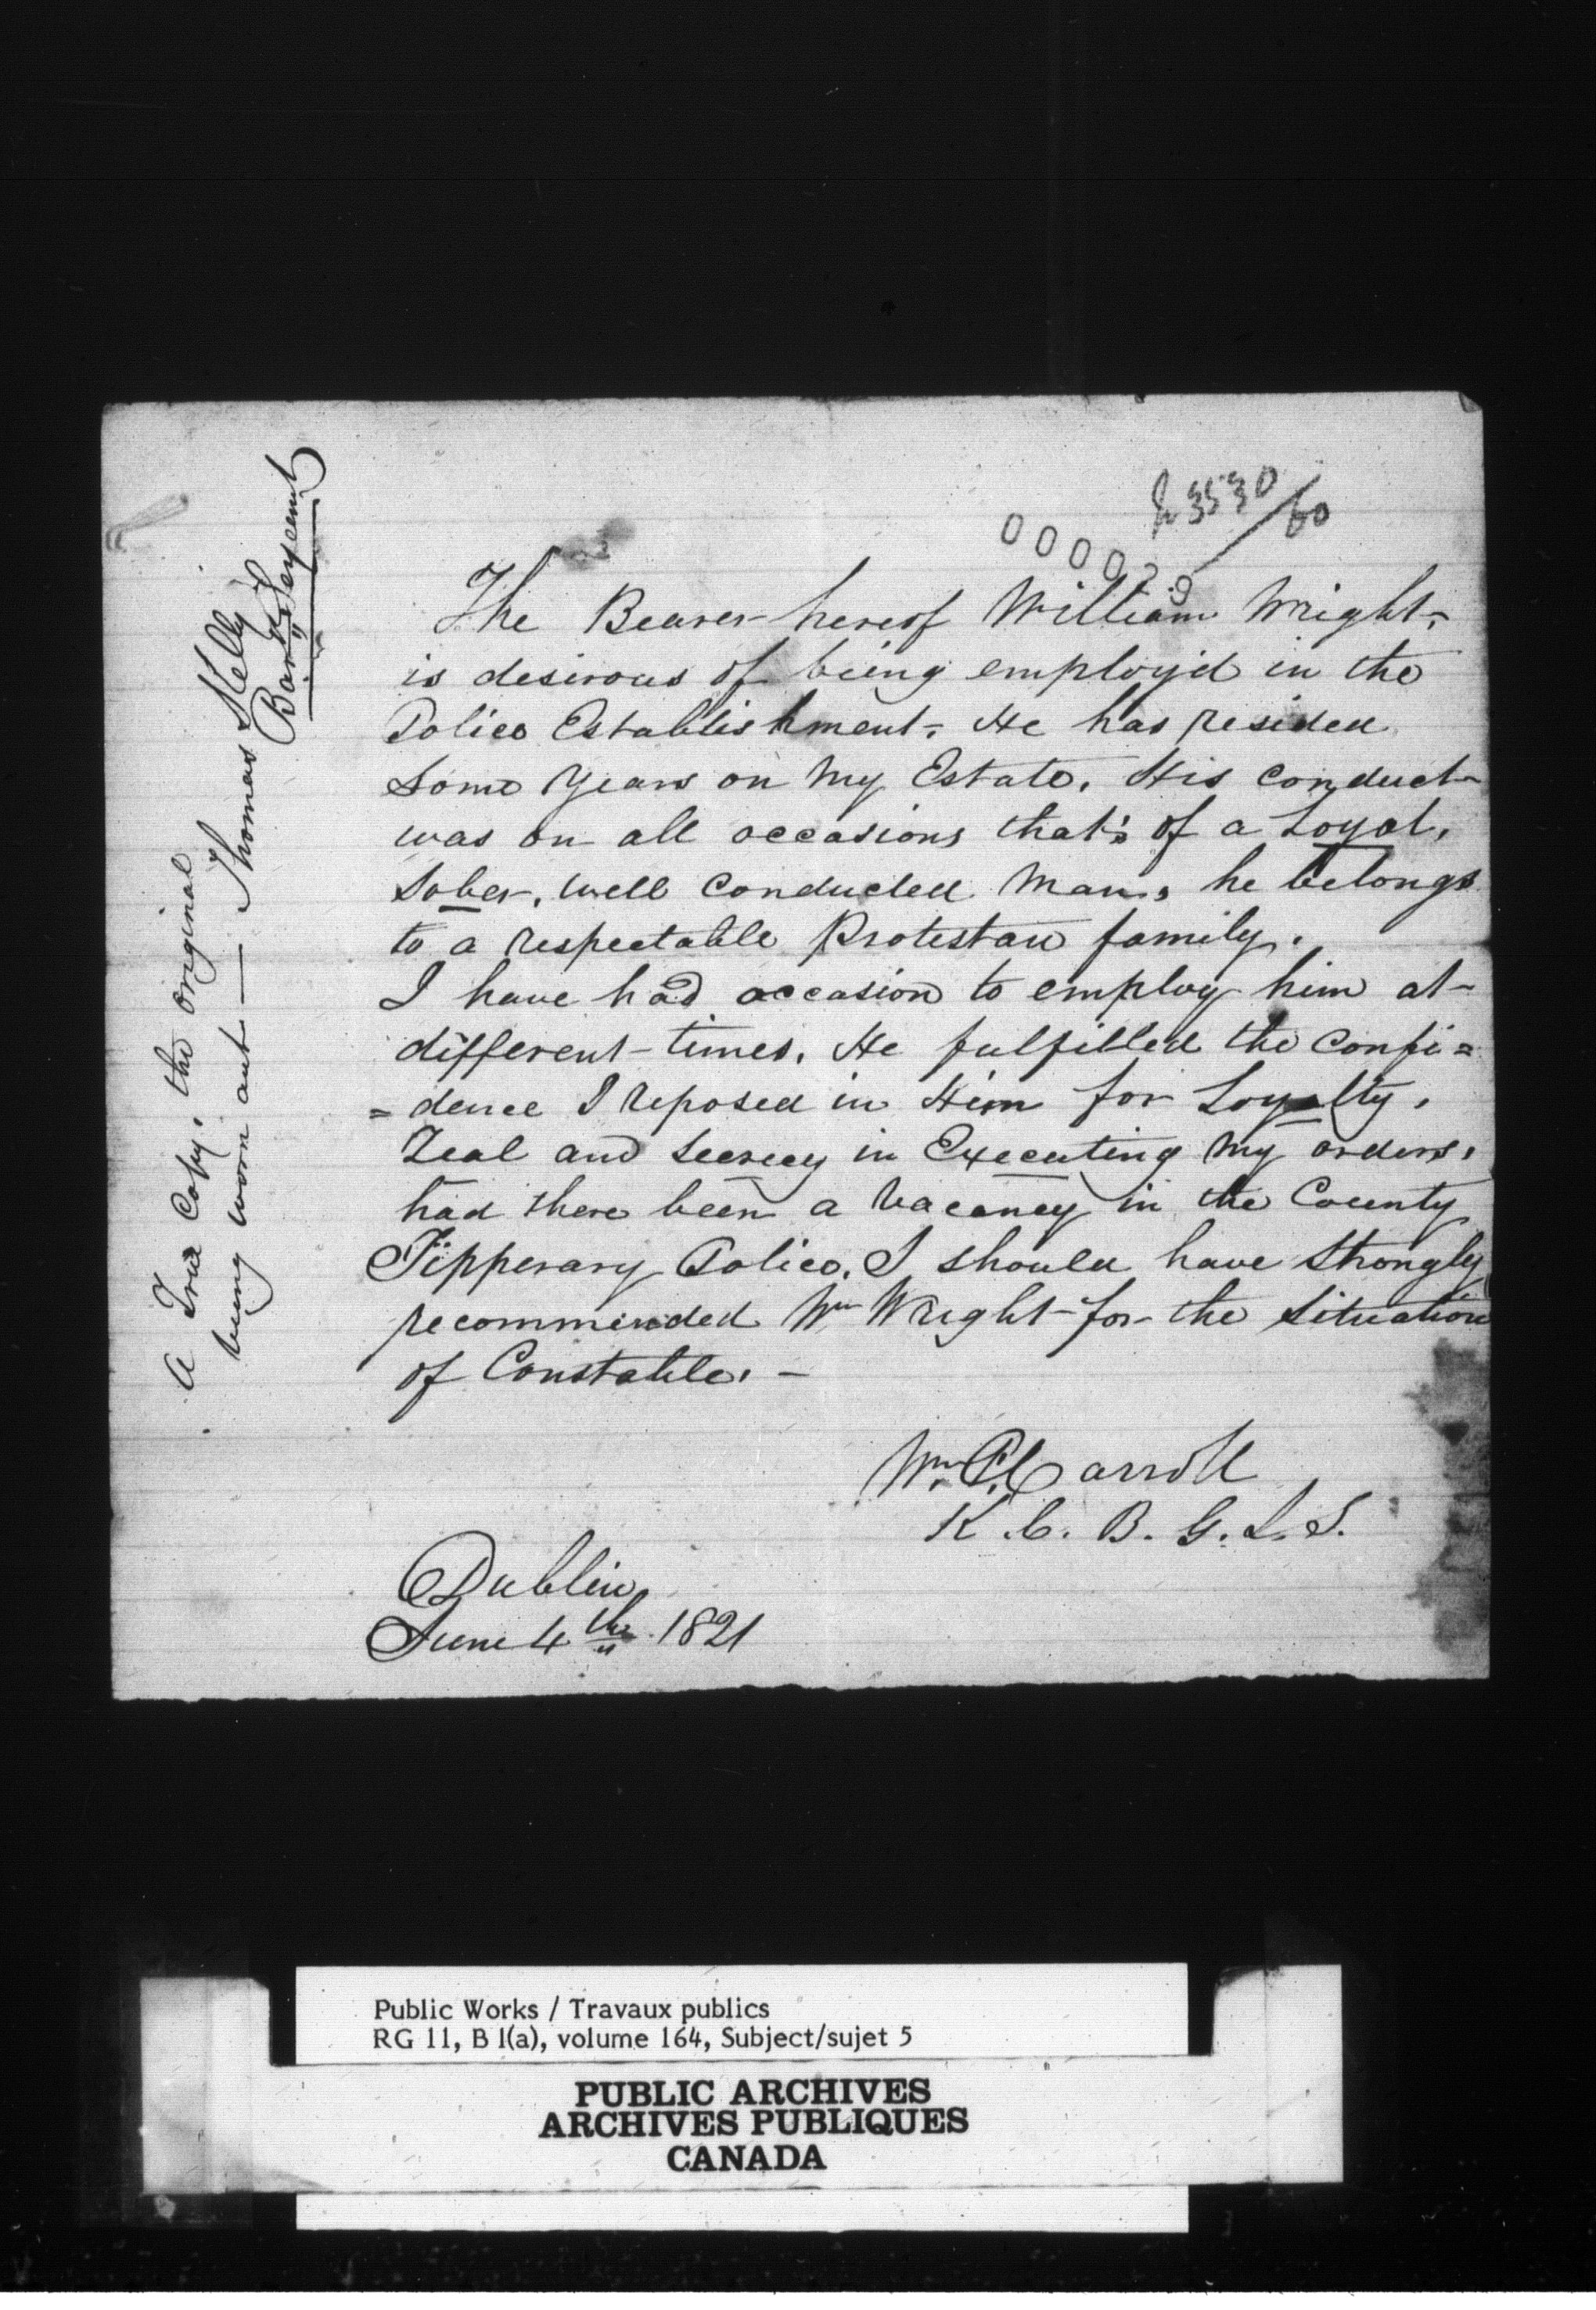 A True Copy, the original
being worn out — Thomas Kelly
Bark Serjeant
h 3530/60
000020
The Bearer hereof William Wright,
is desirous of being employ'd in the
Police Establishment. He has resided
some years on my Estate. His conduct
was on all occasions that's of a Loyal,
Sober, well conducted man, he belongs
to a respectable Protestan family.
I have had occasion to employ him at
different times. He fulfilled the confi=
=dence I reposed in Him for Loyalty,
Zeal and Secrecy in Executing my orders,
had there been a Vacancy in the County
Tipperary Police. I should have Strongly
recommended Wm Wright for the Situation
of Constable. —
Wm. P. Carroll
K. C. B. G. L. S.
Dublin
June 4th 1821
Public Works / Travaux publics
RG 11, B 1(a), volume 164, Subject/sujet 5
PUBLIC ARCHIVES
ARCHIVES PUBLIQUES
CANADA